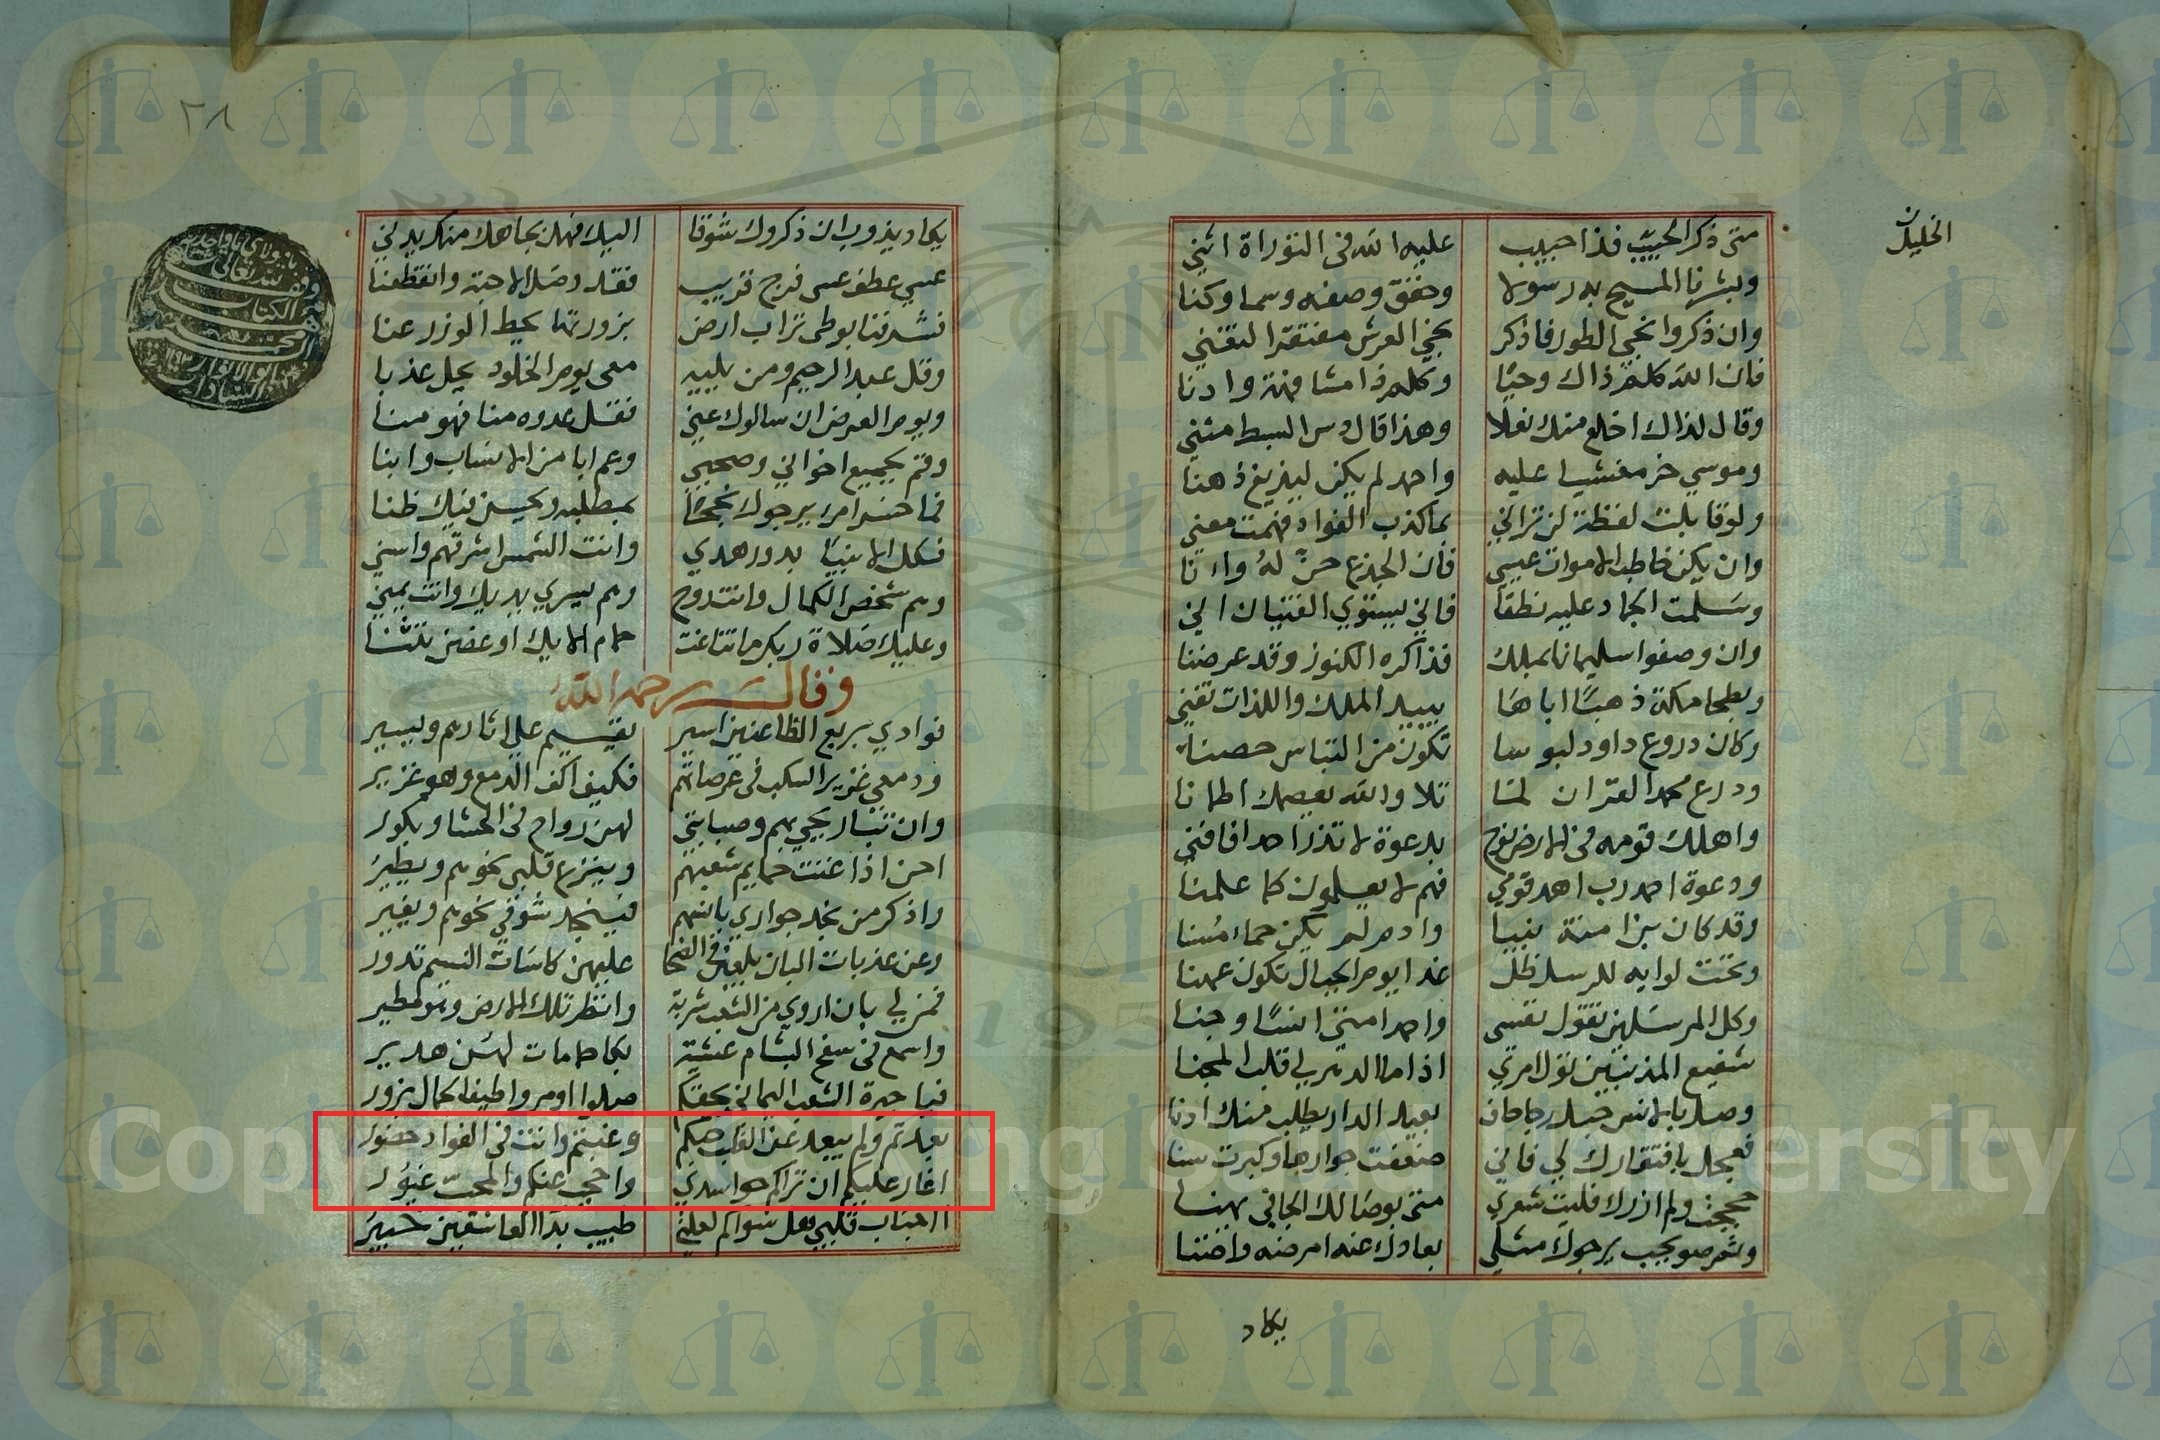 الخليلان
متى ذكر الحبيب فذا حبيب عليه الله في التوراة اثني
وبشرنا المسيح به رسولا وحقق وصفه وسما وكنا
وان ذكروا نجي الطور فاذكر نجي العرش مفتقرا لتغني
فان الله كلم ذاك وحيا وكلم ذا مشافهة وادنا
وقال لذاك اخلع منك نعلا وهذا قال دس البسط مثني
وموسي خر مغشيا عليه واحمد لم يكن ليزيغ ذهنا
ولو قابلت لفظة لن تراني بما كذب الفواد فهمت معني
وان يكن خاطب الاموات عيسي فان الجذع حن له وانا
وسلمت الجماد عليه نطقا فاني يستوي الفتيان اني
وان وصفوا سليمانا بملك فذا كره الكنوز وقد عرضنا
وبطحا مكة ذهبا اباها يبيد الملك واللذات تفني
وكان دروع داود لبوسا تكون من التباس حصنا
ودرع محمد القران لما تلا والله يعصمك اطمانا
واهلك قومه في الارض نوح بدعوة لا تذر احدا فافني
ودعوة احمد رب اهد قومي فهم لا يعلمون كما علمنا
وقد كان بن امنة نبيا وادم لم يكن حماء مسنا
وتحت لوايه للرسل ظل غدا يوم الجبال تكون عهنا
وكل المرسلين تقول نفسي واحمد امتي انسا وجنا
شفيع المذنبين تول امري اذا ما الدهر لي قلب المجنا
وصل بالانس حبل رجا جان بعيد الدار يطلب منك ادنا
فعجل بافتقارك لي فاني ضعفت جوارحا وكبرت سنا
حججت ولم ازرك فليت شعري متى بوصالك الجاني يهنا
وثم صويحب يرجوك مثلي بعادك عنه امرضه واضنا
يكاد
٢٨
يكاد يذوب ان ذكروك شوقا اليك فهل بجاهك منك يدني
عسي عطف عسى فرج قريب فقد وصل الاحبة وانقطعنا
فشرفنا بوطي تراب ارض بزورتها يحط الوزر عنا
وقل عبد الرحيم ومن يليه معي يوم الخلود يحل عدنا
ويوم العرض ان سالوك عني فقل عدوه منا فهو منا
وقم بجميع اخواني وصحبي وعم ابا من الانساب وابنا
فما خسر امرء يرجوك نجحا بمطلبه ويحسن فيك ظنا
فكل الانبيا بدور هدي وانت الشمس اشرقهم واسني
وهم شخص الكمال وانت روح وهم يسري يديك وانت يمني
وعليك صلاة ربك ما تناغت حمام الايك او غصن تثنا
وقال رحمه الله
فوادي بربع الظاعنين اسير يقيم على اثارهم ويسير
ودمعي غزير السكب في عرصاتهم فكيف اكف الدمع وهو غزير
وان تباريحي بهم وصبابتي لهن رواح في الحشا وبكور
احن اذا غنت حمايم شعبهم وينزع قلبي نحوهم ويطير
واذكر من نجد جواري بانهم فينجد شوقي نحوهم ويغير
وعن عذبات البان يلعبن في الضحا عليهن كاسات النسيم تدور
فمن لي بان اروي من الشعب شربة وانظر تلك الارض وهو مطير
واسمع في سفح البشام عشية بكا حمامات لهن هدير
فيا جيرة الشعب اليماني بحقكم صلوا او مروا طيف الخيال يزور
بعدتم ولم يبعد عن القلب حبكم وغبتم وانتم في الفواد حضور
اغار عليكم ان تراكم حواسدي واحجب عنكم والمحب غيور
ااحباب قلبي هل سواكم لعلتي طبيب بدا العاشقين خبير